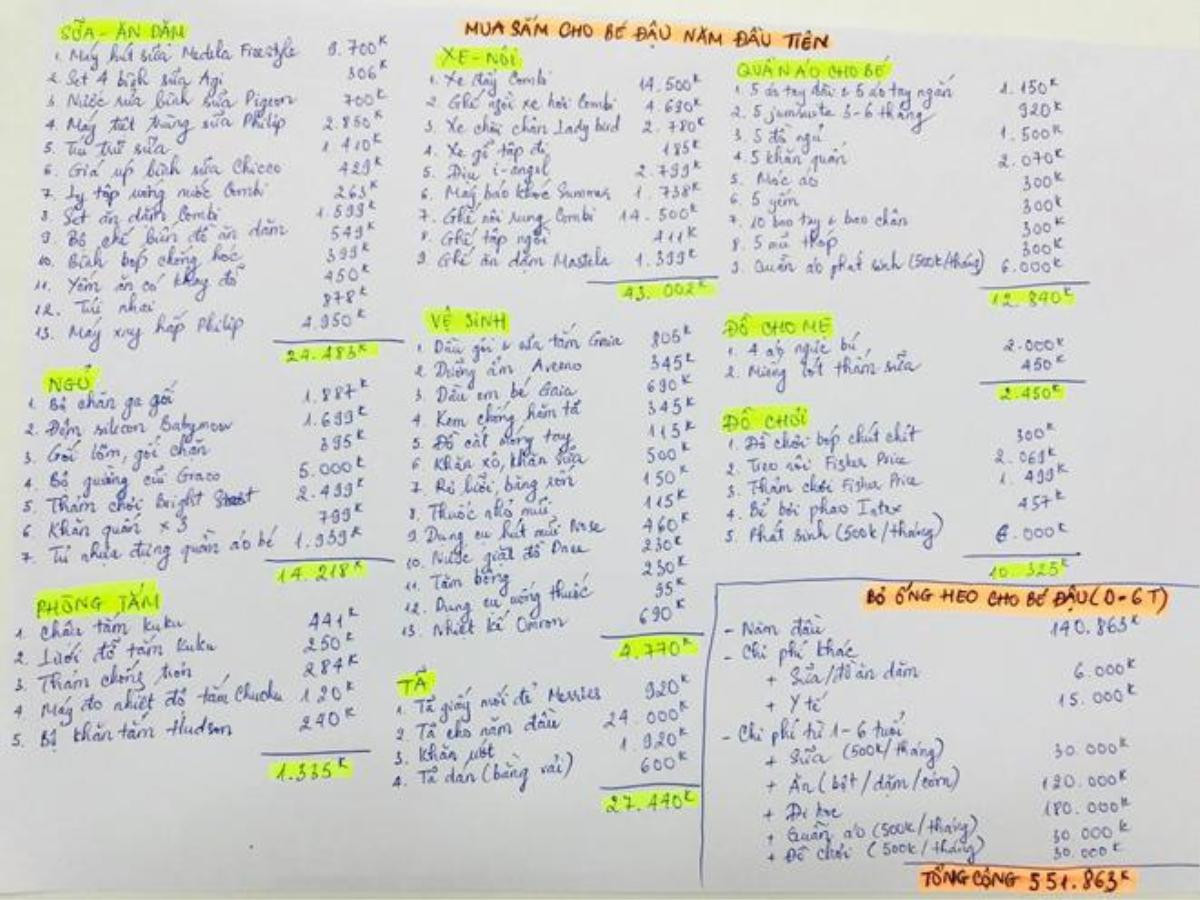 MUA SẮM CHO BÉ ĐẬU NĂM ĐẦU TIÊN
SỮA - ĂN DẶM
1. Máy hút sữa Medela Freestyle 9.700K
2. Set 4 bình sữa Agi 306K
3. Nước rửa bình sữa Pigeon 700K
4. Máy tiệt trùng sữa Philip 2.850K
5. Túi trữ sữa 1.410K
6. Giá úp bình sữa Chicco 429K
7. Ly tập uống nước Combi 263K
8. Set ăn dặm Combi 1.599K
9. Bộ chế biến đồ ăn dặm 549K
10. Bình bóp chống hóc 399K
11. Yếm ăn có khay đỡ 450K
12. Túi nhai 878K
13. Máy xay hấp Philip 4.950K
24.483K
NGỦ
1. Bộ chăn ga gối 1.887K
2. Đệm silicon Babymow 1.699K
3. Gối lõm, gối chăn 395K
4. Bộ giường cũi Graco 5.000K
5. Thảm chơi Bright 2.499K
6. Khăn quấn x 3 799K
7. Tủ nhựa đựng quần áo bé 1.939K
14.218K
PHÒNG TẮM
1. Chậu tắm Kuku 441K
2. Lưới đỡ tắm Kuku 250K
3. Thảm chống trơn 284K
4. Máy đo nhiệt độ tắm Chuchu 120K
5. Bộ khăn tắm Hudson 240K
1.335K
XE - NÔI
1. Xe đẩy Combi 14.500K
2. Ghế ngồi xe hơi Combi 4.690K
3. Xe chòi chân Lady bird 2.780K
4. Xe gỗ tập đi 185K
5. Địu i-angel 2.799K
6. Máy báo khóc Summer 1.738K
7. Ghế nôi rung Combi 14.500K
8. Ghế tập ngồi 411K
9. Ghế ăn dặm Mastela 1.399K
43.002K
VỆ SINH
1. Dầu gội & sữa tắm Gaia 805K
2. Dưỡng ẩm Aveeno 345K
3. Dầu em bé Gaia 690K
4. Kem chống hăm tã 345K
5. Đồ cắt móng tay 115K
6. Khăn xô, khăn sữa 500K
7. Rơ lưỡi, băng rốn 150K
8. Thuốc nhỏ mũi 115K
9. Dụng cụ hút mũi Nose 460K
10. Nước giặt đồ Dnee 230K
11. Tăm bông 230K
12. Dụng cụ uống thuốc 95K
13. Nhiệt kế Omron 690K
4.770K
TÃ
1. Tã giấy mới đẻ Merries 920K
2. Tã cho năm đầu 24.000K
3. Khăn ướt 1.920K
4. Tã dán (bằng vải) 600K
27.440K
QUẦN ÁO CHO BÉ
1. 5 áo tay dài & 5 áo tay ngắn 1.150K
2. 5 jumsuits 3-6 tháng 920K
3. 5 đồ ngủ 1.500K
4. 5 khăn quấn 2.070K
5. Móc áo 300K
6. 5 yếm 300K
7. 10 bao tay & bao chân 300K
8. 5 mũ thóp 300K
9. Quần áo phát sinh (500k/tháng) 6.000K
12.840K
ĐỒ CHO MẸ
1. 4 áo ngực bú 2.000K
2. Miếng lót thấm sữa 450K
2.450K
ĐỒ CHƠI
1. Đồ chơi bóp chút chít 300K
2. Treo nôi Fisher Price 2.069K
3. Thảm chơi Fisher Price 1.499K
4. Bể bơi phao Intex 457K
5. Phát sinh (500k/tháng) 6.000K
10.325K
BỎ ỐNG HEO CHO BÉ ĐẬU (0-6T)
- Năm đầu 140.863K
- Chi phí khác
+ Sữa/đồ ăn dặm 6.000K
+ Y tế 15.000K
- Chi phí từ 1-6 tuổi
+ Sữa (500k/tháng) 30.000K
+ Ăn (bột/dặm/cơm) 120.000K
+ Đi học 180.000K
+ Quần áo (500k/tháng) 30.000K
+ Đồ chơi (500k/tháng) 30.000K
TỔNG CỘNG 551.863K